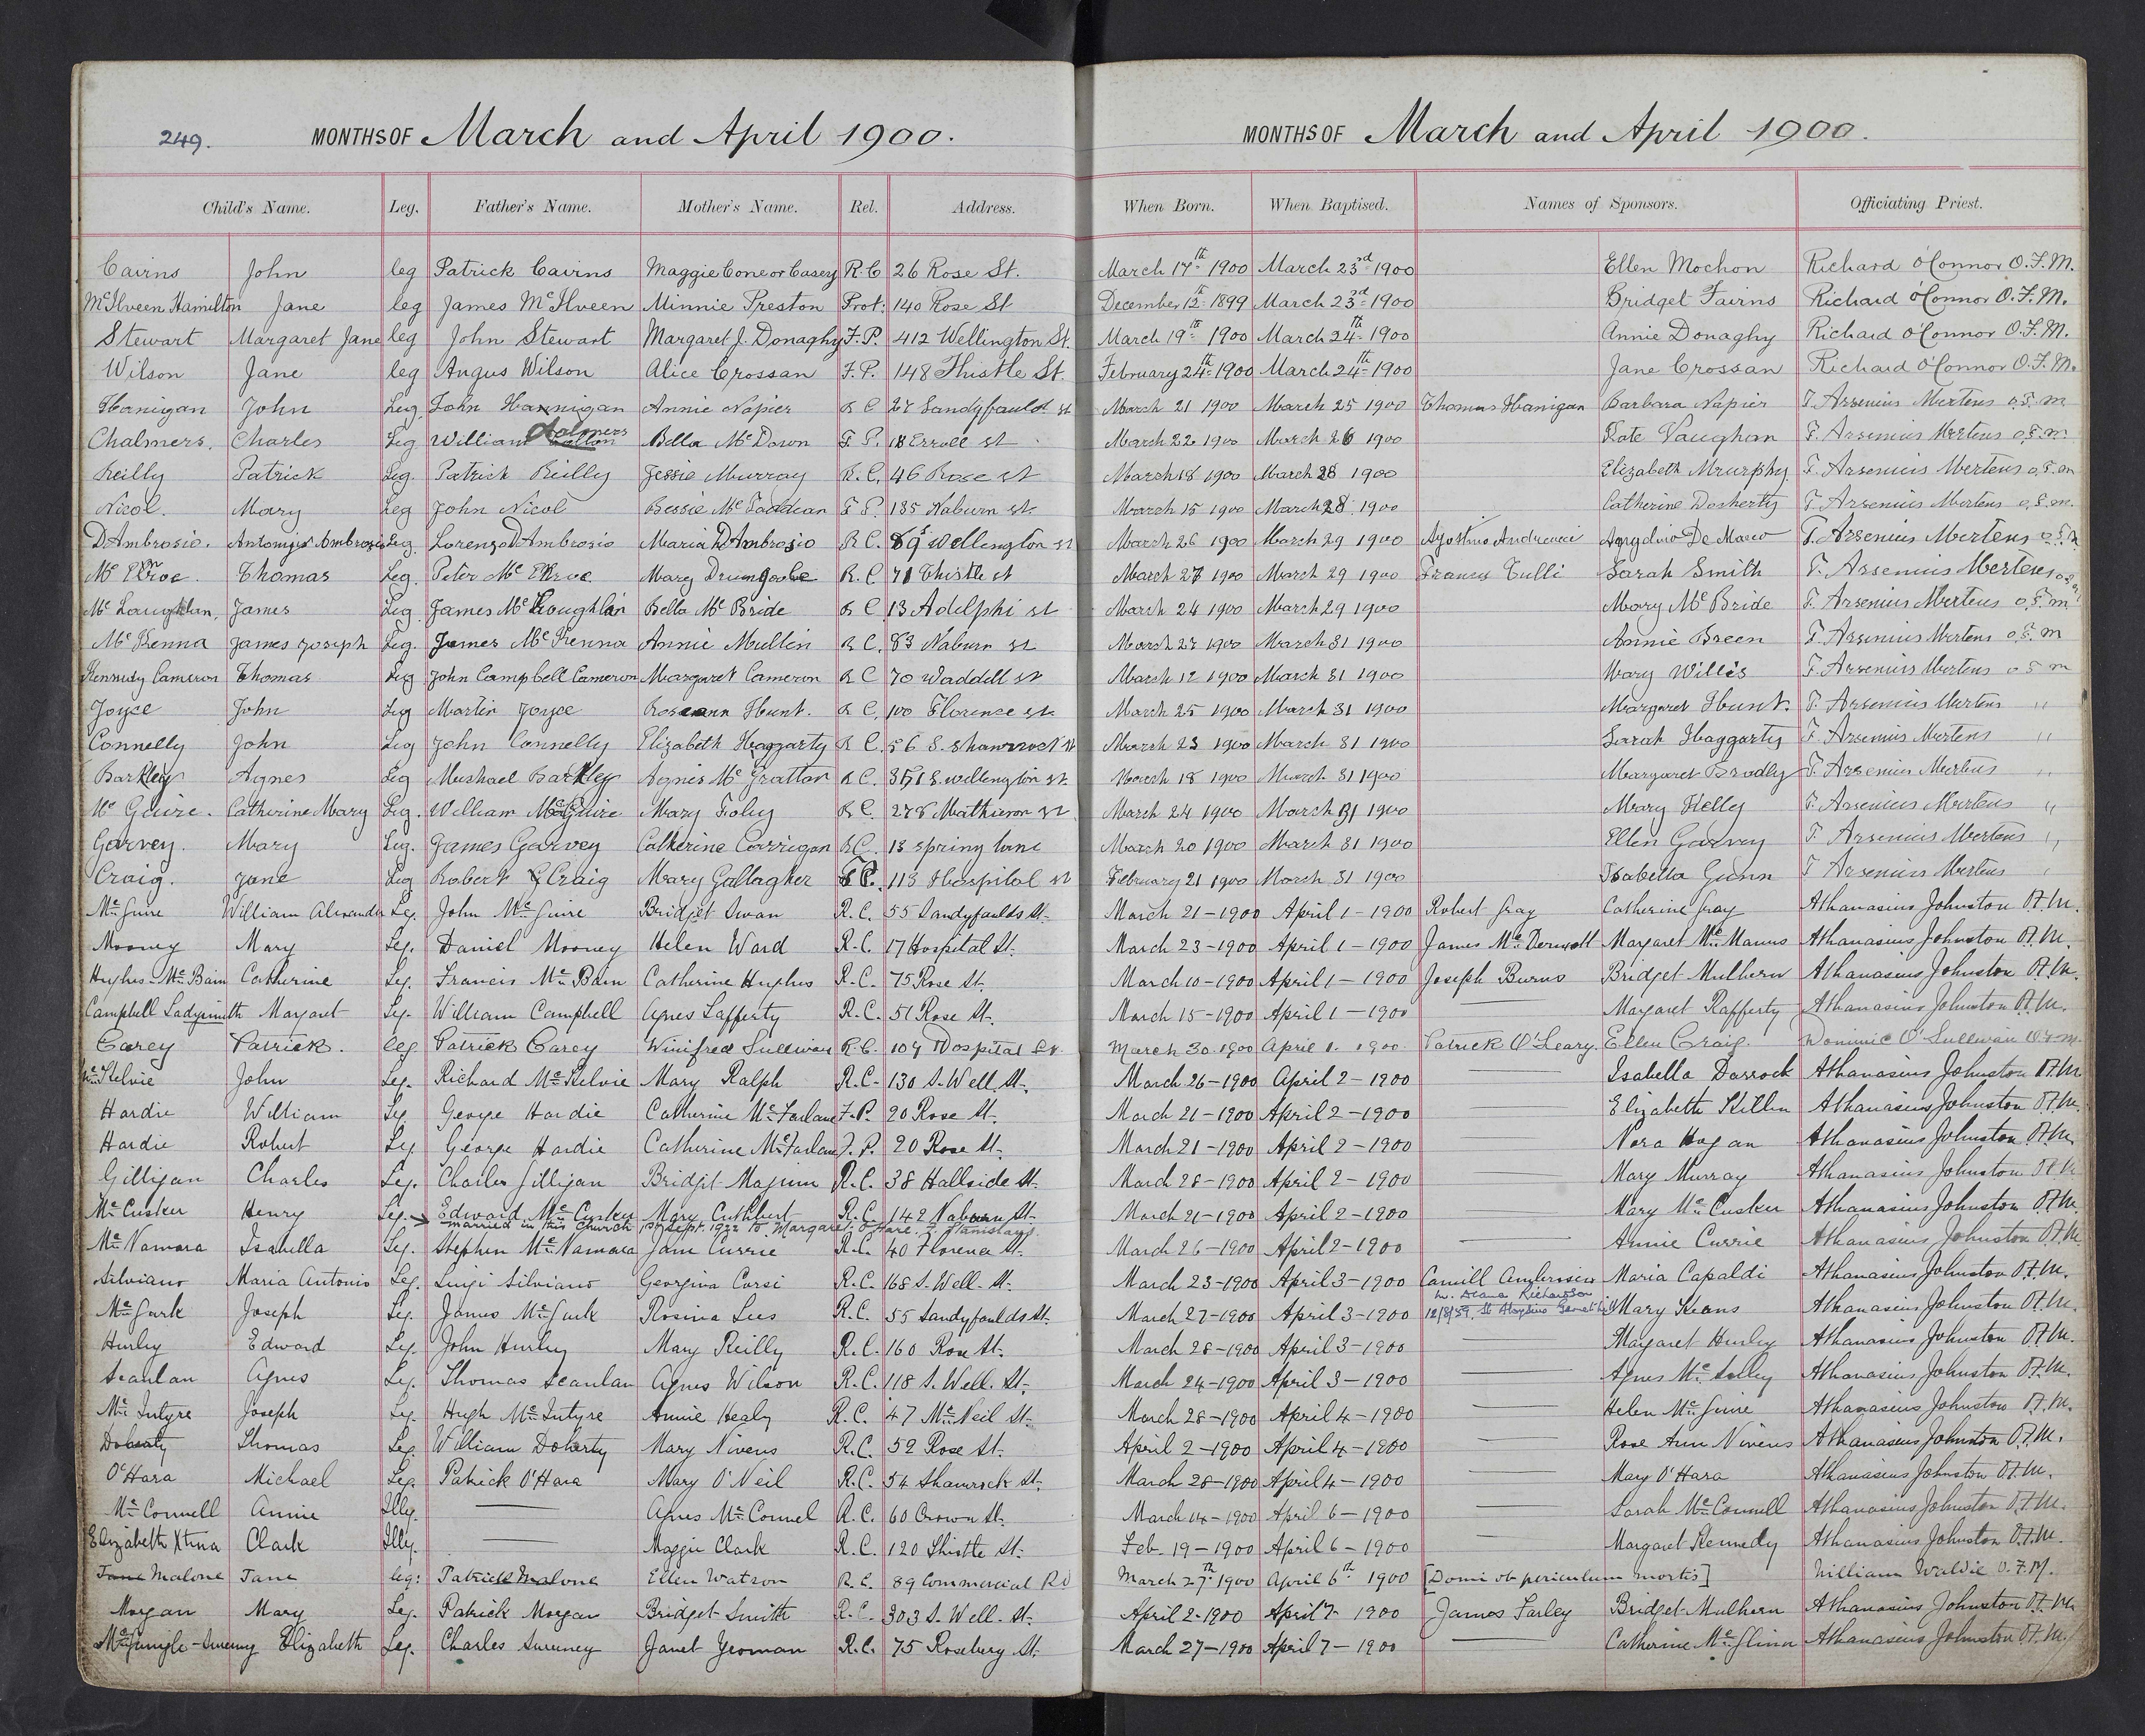 249.
MONTHS OF March and April 1900.
MONTHS OF March and April 1900.
Child's Name. Leg. Father's Name. Mother's Name. Rel. Address. When Born. When Baptised. Names of Sponsors. Officiating Priest.
Cairns John leg Patrick Cairns Maggie Cone or Casey R.C 26 Rose St. March 17th 1900 March 23rd 1900 Ellen Mochon Richard O'Connor O.F.M.
McIlveen Hamilton Jane leg James McIlveen Minnie Preston Prot: 140 Rose St December 12th 1899 March 23rd 1900 Bridget Fairns Richard O'Connor O.F.M.
Stewart Margaret Jane leg John Stewart Margaret J. Donaghy F.P. 412 Wellington St. March 19th 1900 March 24th 1900 Annie Donaghy Richard O'Connor O.F.M.
Wilson Jane leg Angus Wilson Alice Crossan F.P. 148 Thistle St. February 24th 1900 March 24th 1900 Jane Crossan Richard O'Connor O.F.M.
Hanigan John Leg. John Hannigan Annie Napier R C 27 Sandyfauld st March 21 1900 March 25 1900 Thomas Hanigan Barbara Napier F. Arsenius Mertens o.F.m
Chalmers. Charles Leg William Chalmers Bella McDown F P. 18 Erroll st March 22 1900 March 26 1900 Kate Vaughan F. Arsenius Mertens o.F.m.
Reilly Patrick Leg. Patrick Reilly Jessie Murray R.C. 46 Rose st March 18 1900 March 28 1900 Elizabeth Mrurphy. F. Arsenius Mertens o.F.m
Nicol. Mary Leg John Nicol Bessie McFaddean F P. 185 Naburn st. March 15 1900 March 28 1900 Catherine Dosherty F. Arsenius Mertens o.F.m.
D'Ambrosio. Leg. Lorenzo D'Ambrosio Maria D'Ambrosio R C. Wellington st March 26 1900 March 29 1900 De Marco F. Arsenius Mertens o.F.m
Thomas Leg. Peter Mary R.C. 71 Thistle st March 27 1900 March 29 1900 Francis Tulli Sarah Smith F. Arsenius Mertens o.F.m
McLaughlan, James Leg James McLoughlin Bella McBride R C. 13 Adelphi st March 24 1900 March 29 1900 Mary McBride F. Arsenius Mertens o.F.m
McKenna James Joseph Leg. James McKenna Annie Mullin R C. 83 Naburn st March 27 1900 March 31 1900 Annie Breen F. Arsenius Mertens o.F.m
Kennedy Cameron Thomas Leg John Campbell Cameron Margaret Cameron R C 70 Waddell st March 12 1900 March 31 1900 Mary Willis F. Arsenius Mertens o F m
Joyce John Leg Martin Joyce Roseann Hunt. R C. 100 Florence st. March 25 1900 March 31 1900 Margaret Hunt. F. Arsenius Mertens "
Connelly John Leg John Connelly Elizabeth Haggarty R C. 56 S. Shamrock st March 23 1900 March 31 1900 Sarah Haggarty F. Arsenius Mertens "
Barkley Agnes Leg Mishael Barkley Agnes McGrattan R C. S. Wellington st. March 18 1900 March 31 1900 Margaret Bradly F. Arsenius Mertens "
McGuire. Catherine Mary Leg. William McGuire Mary Foley R C. 278 Mathieson st. March 24 1900 March 31 1900 Mary Kelly F. Arsenius Mertens "
Garvey. Mary Leg. James Garvey Catherine Corrigan R C. 13 Spring lane March 20 1900 March 31 1900 Ellen Garvey F. Arsenius Mertens "
Craig. Jane Leg Robert Craig Mary Gallagher F.P. 113 Hospital st February 21 1900 March 31 1900 Isabella Gunn F Arsenius Mertens "
McGuire William Alexander Leg. John McGuire Bridget Swan R.C. 55 Sandyfaulds St. March 21-1900 April 1-1900 Robert Gray Catherine Gray Athanasius Johnston O.F.M.
Mooney Mary Leg. Daniel Mooney Helen Ward R.C. 17 Hospital St. March 23-1900 April 1-1900 James McDermott Margaret McManus Athanasius Johnston O.F.M.
Hughes-McBain Catherine Leg. Francis McBain Catherine Hughes R.C. 75 Rose St. March 10-1900 April 1-1900 Joseph Burns Bridget Mulhern Athanasius Johnston O.F.M.
Campbell Ladysmith Margaret Leg. William Campbell Agnes Lafferty R.C. 51 Rose St. March 15-1900 April 1-1900 Margaret Rafferty Athanasius Johnston O.F.M.
Carey Patrick. leg. Patrick Carey Winifred Sullivan R.C. 109 Hospital St. March 30.1900 April 1. 1900 Patrick O'Leary. Ellen Craig. Dominic O'Sullivan O.F.M.
McKelvie John Leg. Richard McKelvie Mary Ralph R.C. 130 S. Well. St. March 26-1900 April 2-1900 Isabella Darrock Athanasius Johnston O.F.M
Hardie William Leg George Hardie Catherine McFarlane F.P. 20 Rose St. March 21-1900 April 2-1900 Elizabeth Killen Athanasius Johnston O.F.M.
Hardie Robert Leg George Hardie Catherine McFarlane F.P. 20 Rose St. March 21-1900 April 2-1900 Nora Hogan Athanasius Johnston O.F.M.
Gilligan Charles Leg. Charles Gilligan Bridget Maguire R.C. 38 Hallside St. March 28-1900 April 2-1900 Mary Murray Athanasius Johnston O.F.M
McCusker Henry Leg. Edward McCusker Mary Cuthbert R.C. 142 Naburn St. March 21-1900 April 2-1900 Mary McCusker Athanasius Johnston O.F.M.
married in this church 15th Sept. 1922 to Margaret O'Hare.
McNamara Isabella Leg. Stephen McNamara Jane Currie R.C. 40 Florence St. March 26-1900 April 2-1900 Annie Currie Athanasius Johnston O.F.M.
Silviano Maria Antonio Leg. Luigi Silviano Georgina Corsi R.C. 168 S. Well. St. March 23-1900 April 3-1900 Camill Ambrosini Maria Capaldi Athanasius Johnston O.F.M.
m. Diana Richardson
McGurk Joseph Leg. James McGurk Rosina Lees R.C. 55 Sandyfaulds St. March 27-1900 April 3-1900 12/8/39. St Aloysius Garnethill Mary Keans Athanasius Johnston O.F.M.
Hurley Edward Leg. John Hurley Mary Reilly R.C. 160 Rose St. March 28-1900 April 3-1900 Margaret Hurley Athanasius Johnston O.F.M.
Scanlan Agnes Leg. Thomas Scanlan Agnes Wilson R.C. 118 S. Well. St. March 24-1900 April 3-1900 Agnes Athanasius Johnston O.F.M.
McIntyre Joseph Leg. Hugh McIntyre Annie Healy R.C. 47 McNeil St. March 28-1900 April 4-1900 Helen McGuire Athanasius Johnston O.F.M.
Doherty Thomas Leg. William Doherty Mary Nivens R.C. 52 Rose St. April 2-1900 April 4-1900 Rose Ann Nivens Athanasius Johnston O.F.M.
O'Hara Michael Leg. Patrick O'Hara Mary O'Neil R.C. 54 Shamrock St. March 28-1900 April 4-1900 Mary O'Hara Athanasius Johnston O.F.M.
McConnell Annie Illg. Agnes McConnel R.C. 60 Crown St. March 14-1900 April 6-1900 Sarah McConnell Athanasius Johnston O.F.M.
Elizabeth Xtina Clark Illg. Maggie Clark R.C. 120 Thistle St. Feb. 19-1900 April 6-1900 Margaret Kennedy Athanasius Johnston O.F.M.
Jane Malone Jane leg: Patrick Malone Ellen Watson R.C. 89 Commercial Rd March 27th 1900 April 6th 1900 [Domi ob periculum mortis] William Waldie O.F.M.
Morgan Mary Leg. Patrick Morgan Bridget Smith R.C. 303 S. Well. St. April 2-1900 April 7-1900 James Farley Bridget Mulhern Athanasius Johnston O.F.M.
Elizabeth Leg. Charles Sweeney Janet Yeoman R.C. 75 Rosebery St. March 27-1900 April 7-1900 Catherine McGlinn Athanasius Johnston O.F.M.